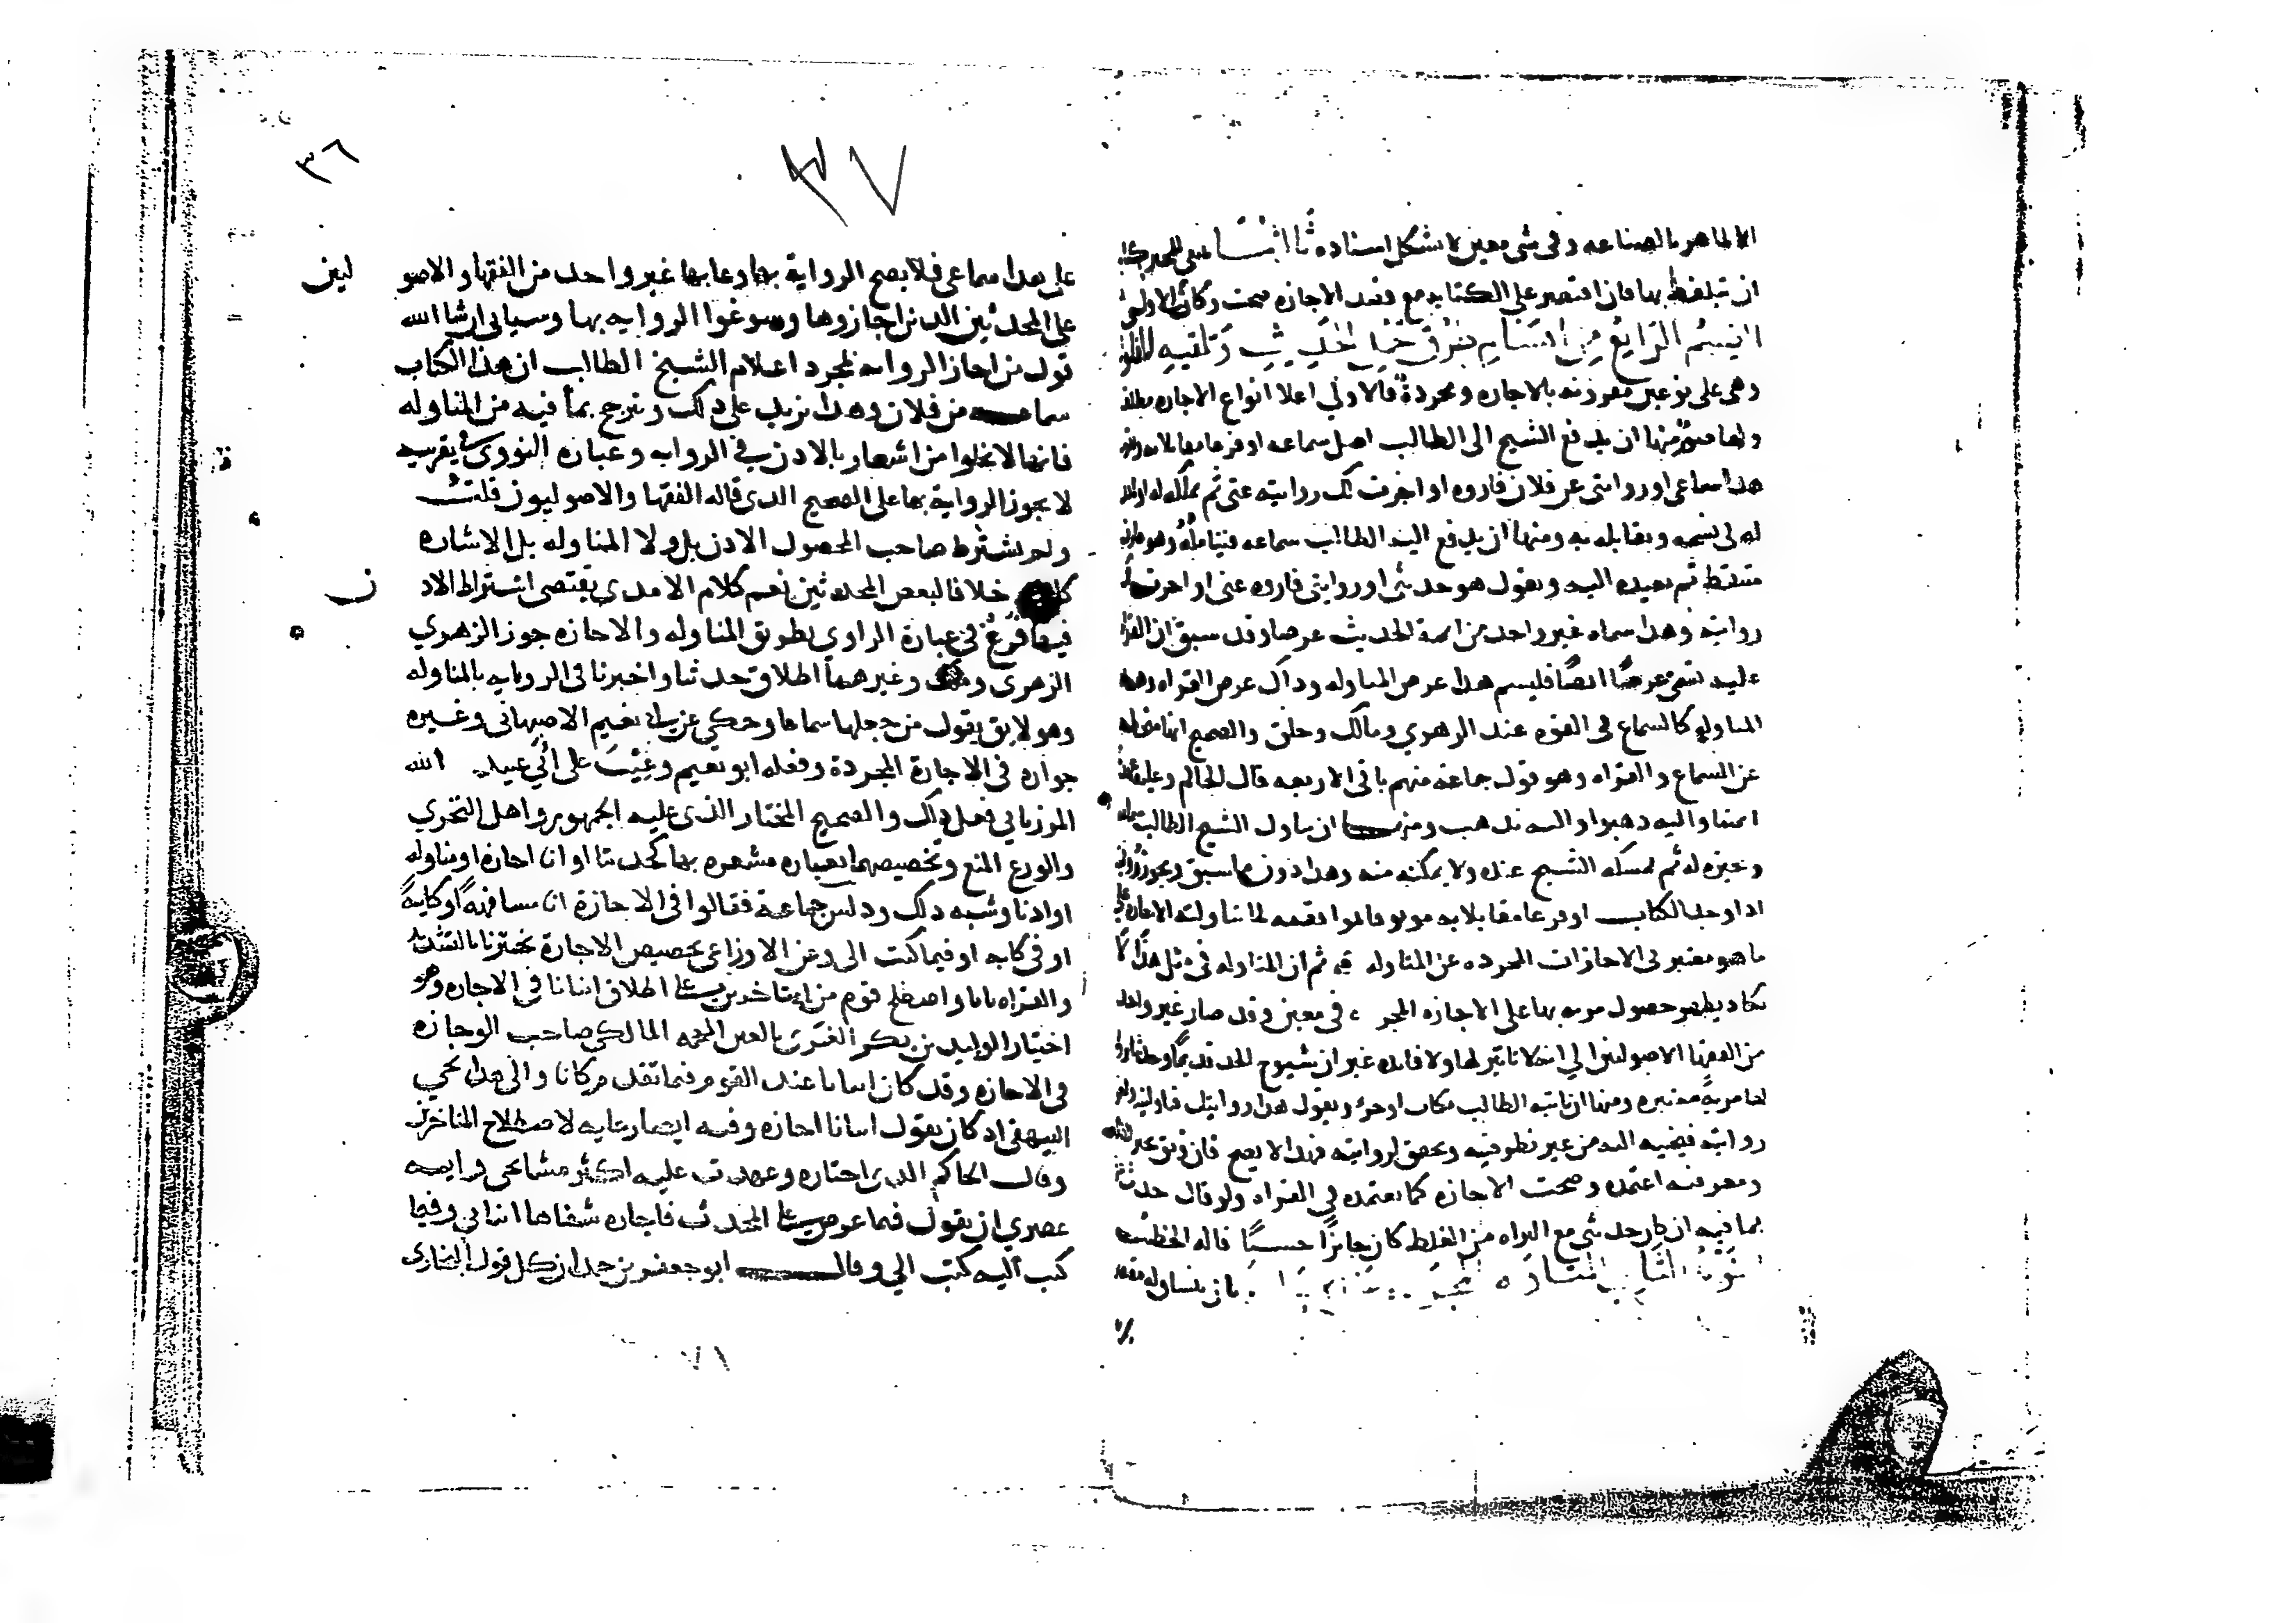 الا لماهر بالصناعه وفى شى معين لا يشكل اسناده ثالثها ينبغي للمجيز كتابة
ان يتلفظ بها فان اقتصر على الكتابه مع قصد الاجازه صحت وكانت الاولى
القسم الرابع من اقسام طرق تحمل الحديث وتلقيه المناوله
وهى على نوعين مقرونه بالاجازه ومجردة فالاولى اعلا انواع الاجازه مطلقا
ولها صور منها ان يدفع الشيخ الى الطالب اصل سماعه او فرعا مقابلا به ويقول
هذا سماعى او روايتى عن فلان فاروه او اجزت لك روايته عنى ثم يملكه له او يقول
له لى نسخه ويقابله به ومنها ان يدفع اليه الطالب سماعه فيتامله وهو عارف
متيقظ ثم يعيده اليه ويقول هو حديثى او روايتى فاروه عنى او اجزت لك
روايته وهذا سماه غير واحد من ايمة الحديث عرضا وقد سبق ان القراة
عليه تسمى عرضا ايضا فليسم هذا عرض المناوله وذاك عرض القراه وهذه
المناوله كالسماع فى القوه عند الزهري ومالك وخلق والصحيح انها منحطه
عن السماع والقراه وهو قول جماعة منهم باقى الاربعه قال الحاكم وعليه عهدنا
ايمتنا واليه ذهبوا واليه نذهب ومنها ان يناول الشيخ الطالب سماعه
ويجيزه له ثم يمسكه الشيخ عنده ولا يمكنه منه وهذا دون ما سبق ويجوز روايته
اذا وجد الكتاب او فرعا مقابلا به موثوقا بموافقته لما تناولته الاجازه على
ما هو معتبر فى الاجازات المجرده عن المناوله فيه ثم ان المناوله فى مثل هذا لا
تكاد يظهر حصول مزيه بها على الاجازه المجر ة فى معين وقد صار غير واحد
من الفقها الاصوليين الي انه لا تاثير لها ولا فايده غير ان شيوخ الحديث قديما وحديثا يرون
لها مزية معتبره ومنها ان ياتيه الطالب بكتاب او جزء ويقول هذا روايتك فناولنيه واجز
روايته فيجيبه اليه من غير نظر فيه وتحقق لروايته فهذا لا يصح فان وثق بخبر الطالب
ومعرفته اعتمده وصحت الاجازه كما يعتمده فى القراه ولو قال حدث
بما فيه ان كان حديثى مع البراه من الغلط كان جايزا حسنا قاله الخطيب
النوع الثاني المناوله المجرده بان يناوله مقتصرا
٣٦
٣٧
على هذا سماعى فلا يصح الرواية بها وعابها غير واحد من الفقها والاصو ليين
على المحدثين الذين اجازوها وسوغوا الروايه بها وسياتى ان شا الله
قول من اجاز الروايه بمجرد اعلام الشيخ الطالب ان هذا الكتاب
سماعه من فلان وهذا يزيد على ذلك ويترجح بما فيه من المناوله
فانها لا تخلوا من اشعار بالاذن فى الروايه وعبارة النووى فى تقريبه
لا يجوز الرواية بها على الصحيح الذى قاله الفقها والاصوليون قلت
ولم يشترط صاحب المحصول الاذن بل ولا المناوله بل الاشاره
خلافا لبعض المحدثين نعم كلام الامدى يقتضى اشتراط الاذ ن
فيها فرع فى عبارة الراوى بطريق المناوله والاجازه جوز الزهري
الزهرى ومالك وغيرهما اطلاق حدثنا واخبرنا فى الروايه بالمناوله
وهو لايق بقول من جعلها سماعا وحكى عن ابى نعيم الاصبهانى وغيره
جوازه فى الاجازة المجردة وفعله ابو نعيم وعيب على ابي عبيد الله
المرزبانى فعل ذلك والصحيح المختار الذى عليه الجمهور واهل التحري
والورع المنع وتخصيصهما بعباره مشعره بها كحدثنا او انا اجازه او مناوله
او اذنا وشبه ذلك ودلس جماعة فقالوا فى الاجازة انا مشافهة او كتابة
او فى كتابه او فيما كتب الى وعن الاوزاعى تخصيص الاجازة بخبرنا بالتشديد
والقراه بانا واصطلح قوم من المتاخرين على اطلاق انبانا فى الاجازه وهو
اختيار الوليد بن بكر الغمرى بالغين المعجمه المالكى صاحب الوجازه
فى الاجازه وقد كان انبانا عند القوم فيما تقدم كانا والى هذا نحى
البيهقى اذ كان يقول انبانا اجازه وفيه ايضا رعايه لاصطلاح المتاخرين
وقال الحاكم الذى اختاره وعهدت عليه اكثر مشايخى وايمه
عصري ان يقول فيما عرض على المحدث فاجازه شفاها انبانى وفيما
كتب اليه كتب الي وقال ابو جعفر بن حمدان كل قول البخارى
٧١